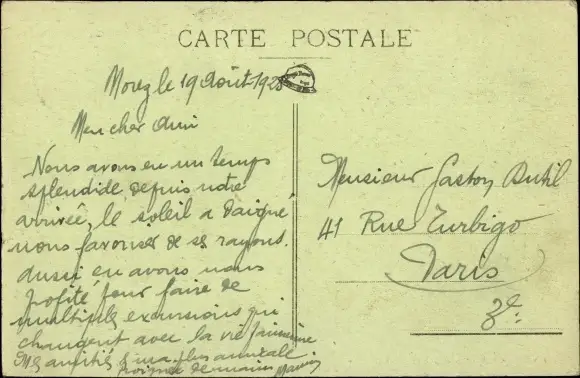 CARTE POSTALE
Morez le 19 Août 1928
Mon cher Ami
Nous avons eu un temps
splendide depuis notre
arrivée, le soleil a daigné
nous favoriser de ses rayons.
aussi en avons nous
profité pour faire de
multiples excursions qui
changent avec la vie
Mes amitiés & ma plus amicale
poignée de mains
Monsieur Gaston Dutil
41 Rue Turbigo
Paris
3e